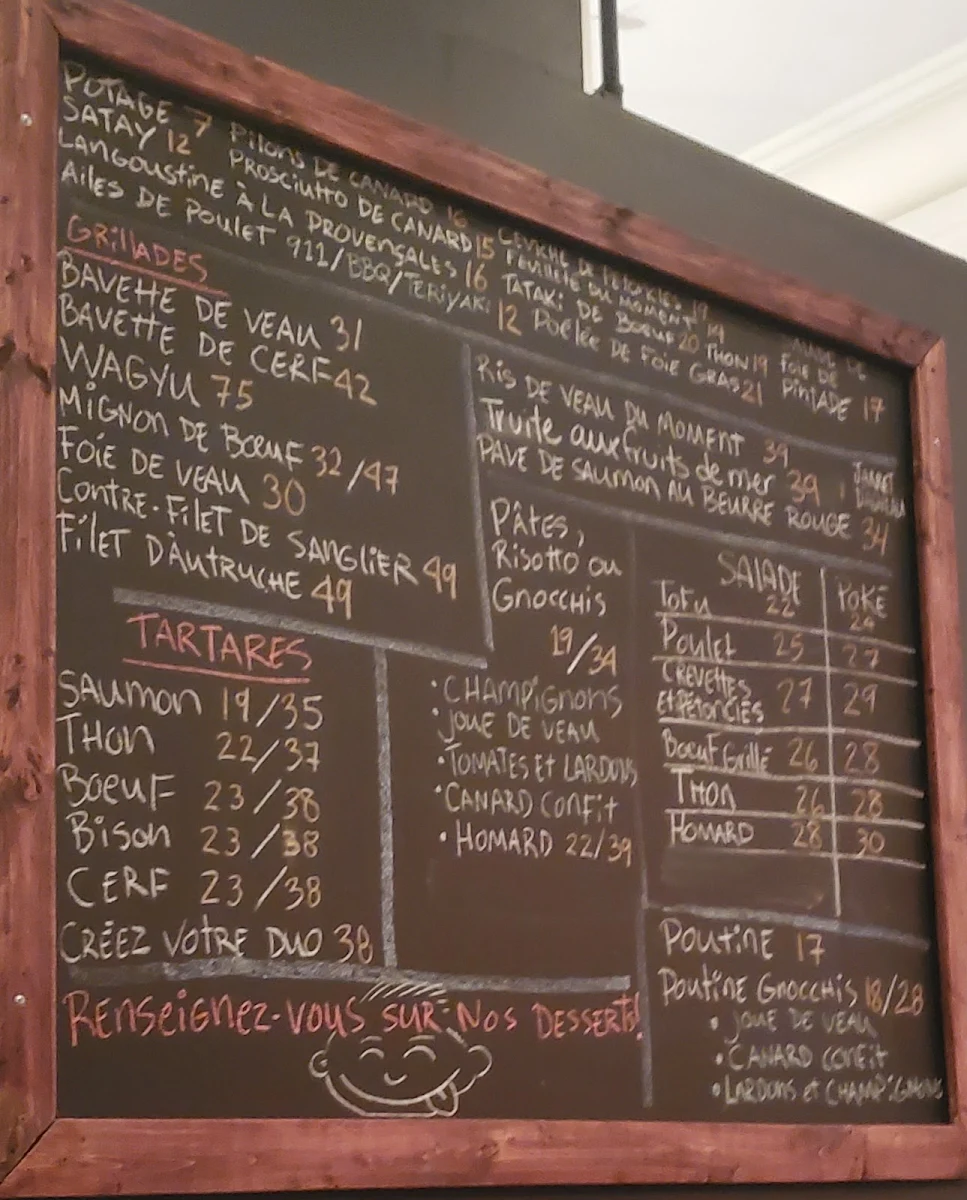 POTAGE 7
SATAY 12
LANGOUSTINE À LA PROVENÇALES 16
AILES DE POULET 911/BBQ/TERIYAKI 12
PILONS DE CANARD 16
PROSCIUTTO DE CANARD 15
CEVICHE DE PÉTONCLES
FEUILLETÉ DU MOMENT 19
TATAKI DE BOEUF 20 THON 19
POÊLÉE DE FOIE GRAS 21
FOIE DE
PINTADE 17
GRILLADES
BAVETTE DE VEAU 31
BAVETTE DE CERF 42
WAGYU 75
MIGNON DE BOEUF 32/47
FOIE DE VEAU 30
CONTRE-FILET DE SANGLIER 49
FILET D'AUTRUCHE 49
RIS DE VEAU DU MOMENT 39
Truite aux fruits de mer 39
PAVÉ DE SAUMON AU BEURRE ROUGE 34
JARRET
TARTARES
SAUMON 19/35
THON 22/37
BOEUF 23/38
BISON 23/38
CERF 23/38
CRÉEZ VOTRE DUO 38
PÂTES,
RISOTTO OU
GNOCCHIS
19/34
• CHAMPIGNONS
• JOUE DE VEAU
• TOMATES ET LARDONS
• CANARD CONFIT
• HOMARD 22/39
SALADE POKÉ
TOFU 22 24
POULET 25 27
CREVETTES
ET PÉTONCLES 27 29
BOEUF GRILLÉ 26 28
THON 26 28
HOMARD 28 30
POUTINE 17
POUTINE GNOCCHIS 18/28
• JOUE DE VEAU
• CANARD CONFIT
• LARDONS ET CHAMPIGNONS
RENSEIGNEZ-VOUS SUR NOS DESSERTS!